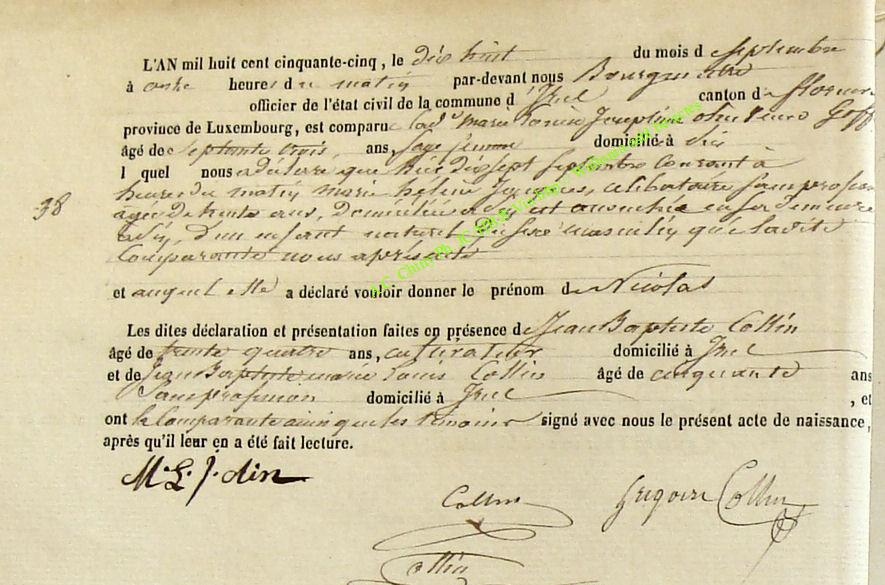 L'AN mil huit cent cinquante-cinq, le dix huit du mois de septembre
à onze heures du matin par-devant nous Bourgmestre
officier de l'état civil de la commune d'Izel canton de
province de Luxembourg, est comparue Marie Josephine
âgé de septante trois ans, sage femme domicilié à
l quel nous a déclaré que hier dix sept septembre courant à
38
heures du matin Marie celibataire sans profession
agée de trente ans, domiciliée à est accouchée en sa demeure
d'un enfant naturel de sexe masculin que la dite
Comparante nous a présenté
et auquel elle a déclaré vouloir donner le prénom de Nicolas
Les dites déclaration et présentation faites en présence de Jean Baptiste Collin
âgé de trente quatre ans, cultivateur domicilié à Izel
et de Jean Baptiste marie Louis Collin âgé de cinquante ans
Sans profession domicilié à Izel, et
ont la Comparante ainsi que les témoins signé avec nous le présent acte de naissance,
après qu'il leur en a été fait lecture.
Collin
Gregoire Collin
Collin